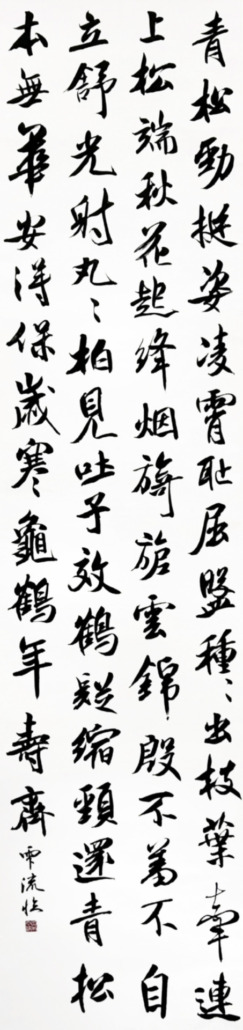 青松勁挺姿凌霄耻屈盤種〻出枝葉牽連
上松端秋花起絳烟旖旎雲錦殷不羞不自
立舒光射丸〻柏見吐子效鶴疑縮頸還青松
本無華安得保歲寒龜鶴年壽齊
流临